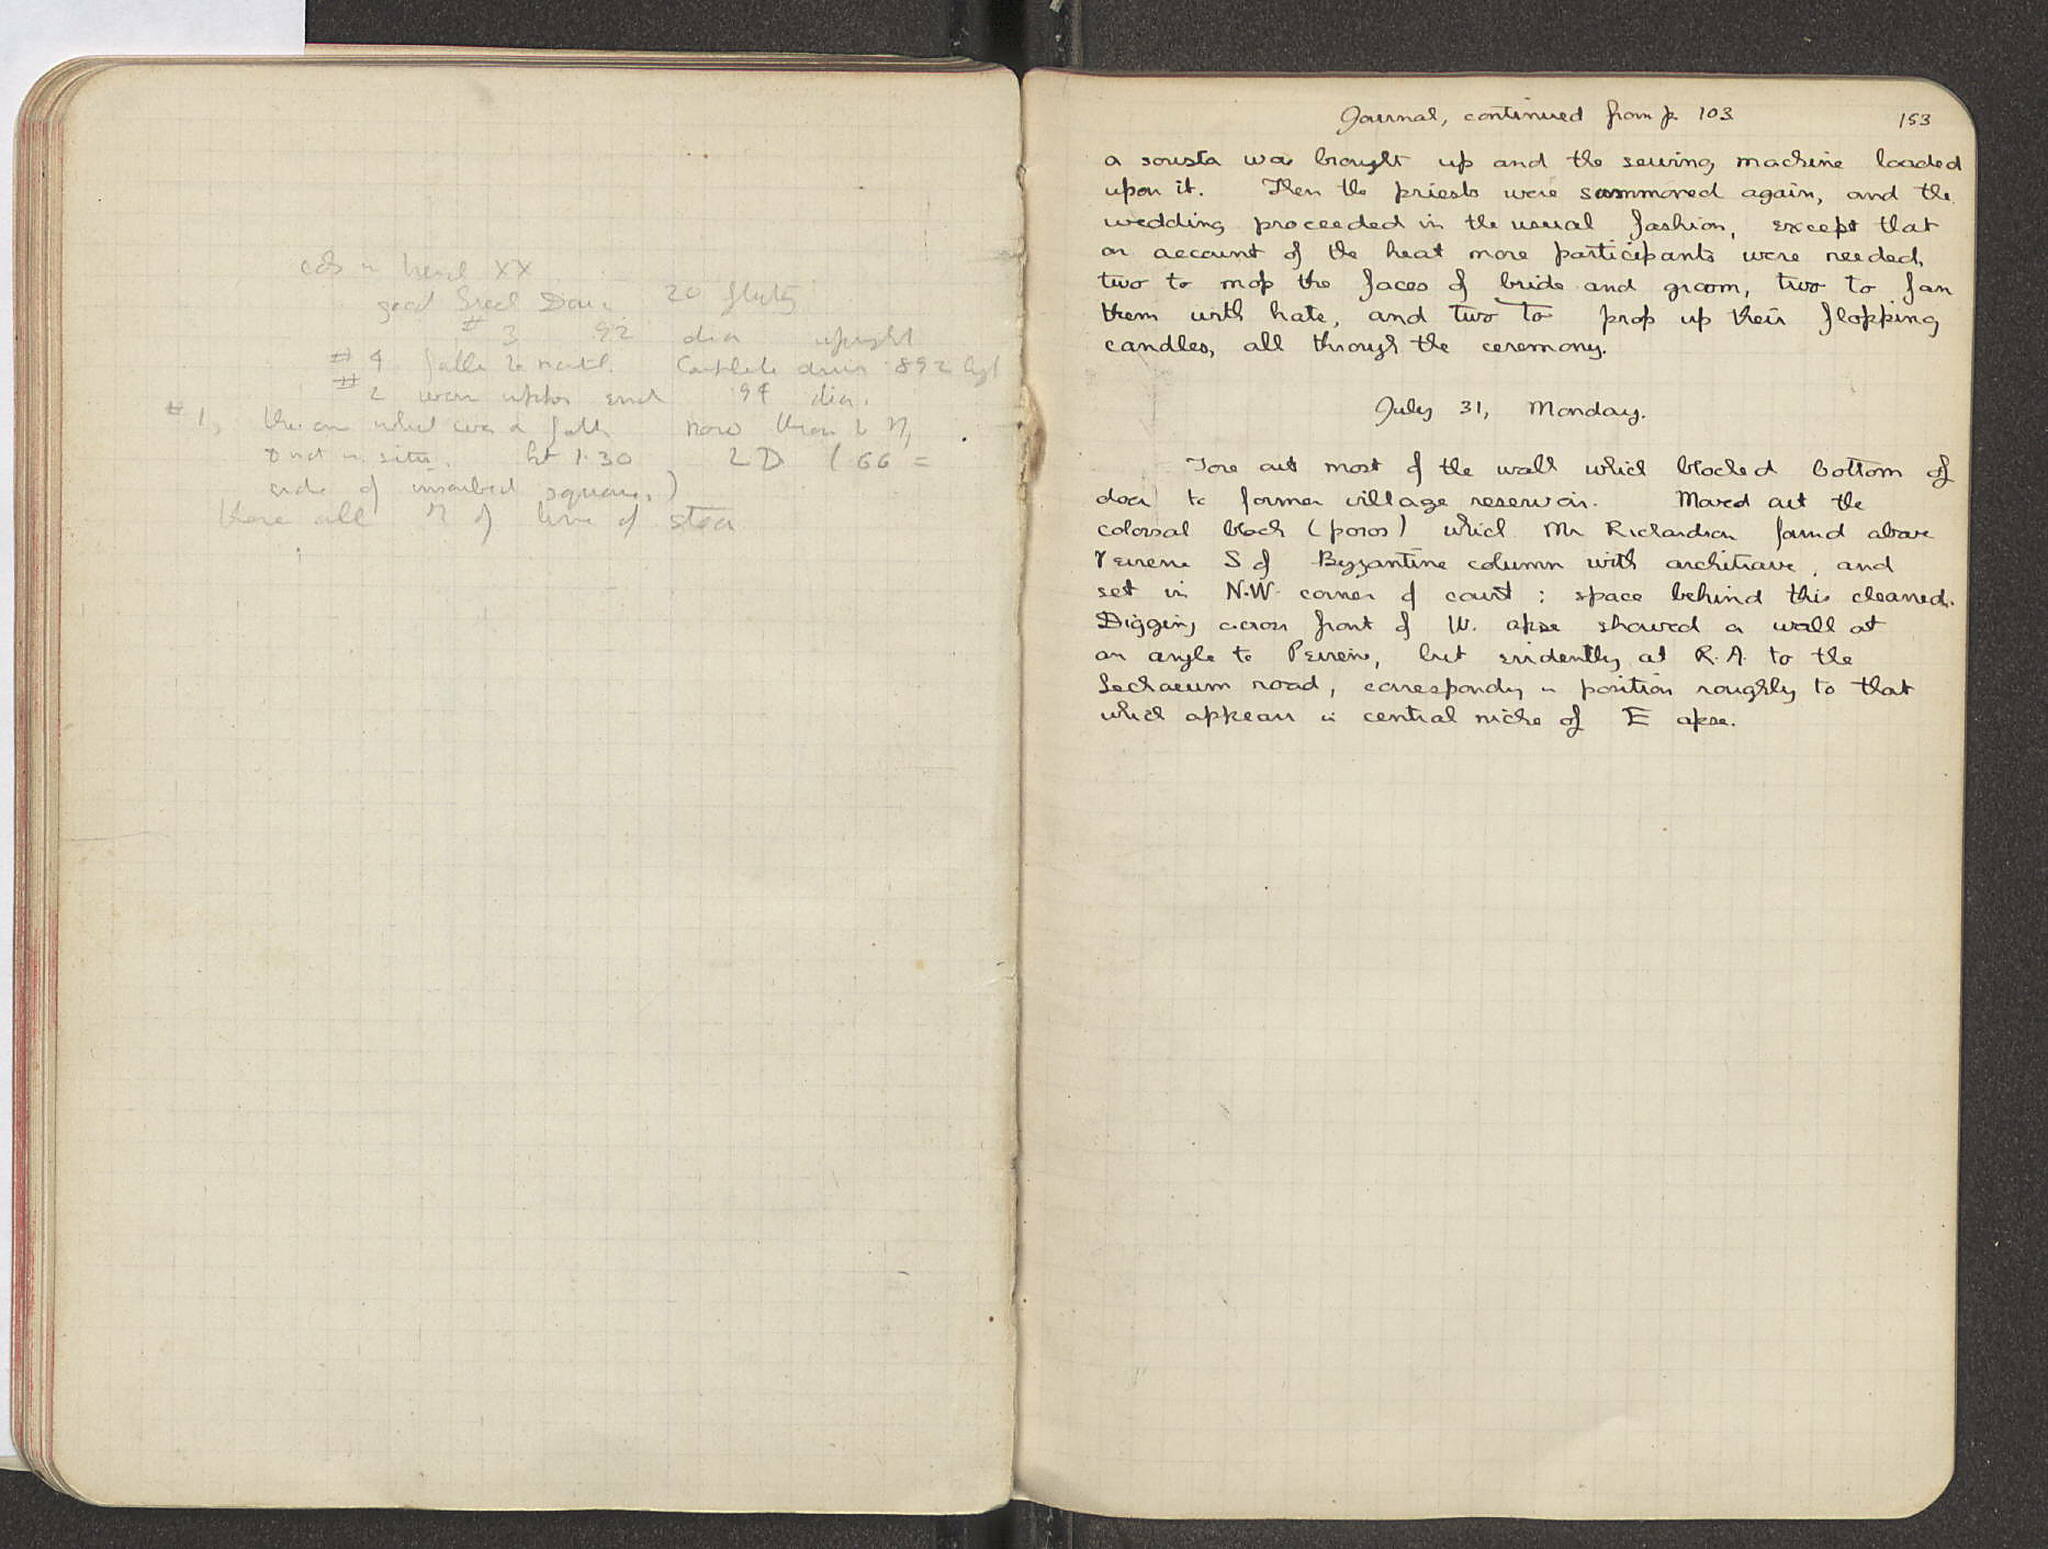 20 flutes
# 3 .92 dia upright
# 4 .892 hgt
# 2 upper end .94 dia.
# 1,
in situ. ht 1.30 2D (66 =
side of inscribed square.)
there all N of line of stoa
Journal, continued from p. 103 153
a sousta was brought up and the sewing machine loaded
upon it. Then the priests were summoned again, and the
wedding proceeded in the usual fashion, except that
on account of the heat more participants were needed,
two to mop the faces of bride and groom, two to fan
them with hats, and two to prop up their flopping
candles, all through the ceremony.
July 31, Monday.
Tore out most of the wall which blocked bottom of
door to former village reservoir. Moved out the
colossal block (poros) which Mr Richardson found above
Peirene S of Byzantine column with architrave, and
set in N.W. corner of court : space behind this cleaned.
Digging across front of W. apse showed a wall at
an angle to Peirene, but evidently at R.A. to the
Lechaeum road, corresponding in position roughly to that
which appears in central niche of E apse.